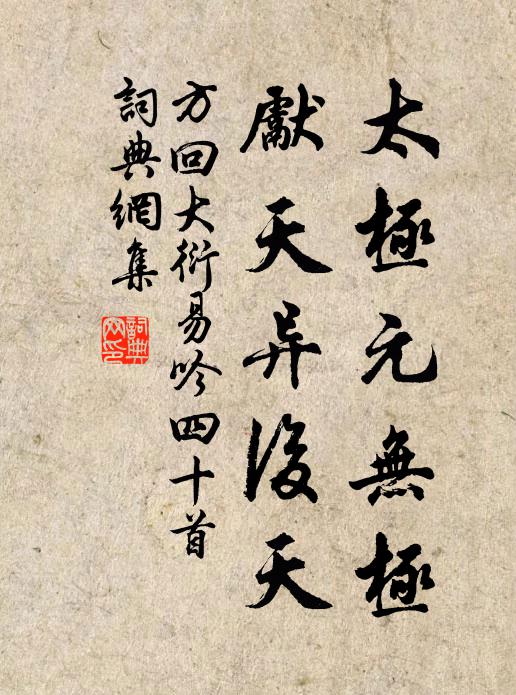 太極元無極
獻天异後天
方回大衍易吟四十首
詞典網集
詞典網印